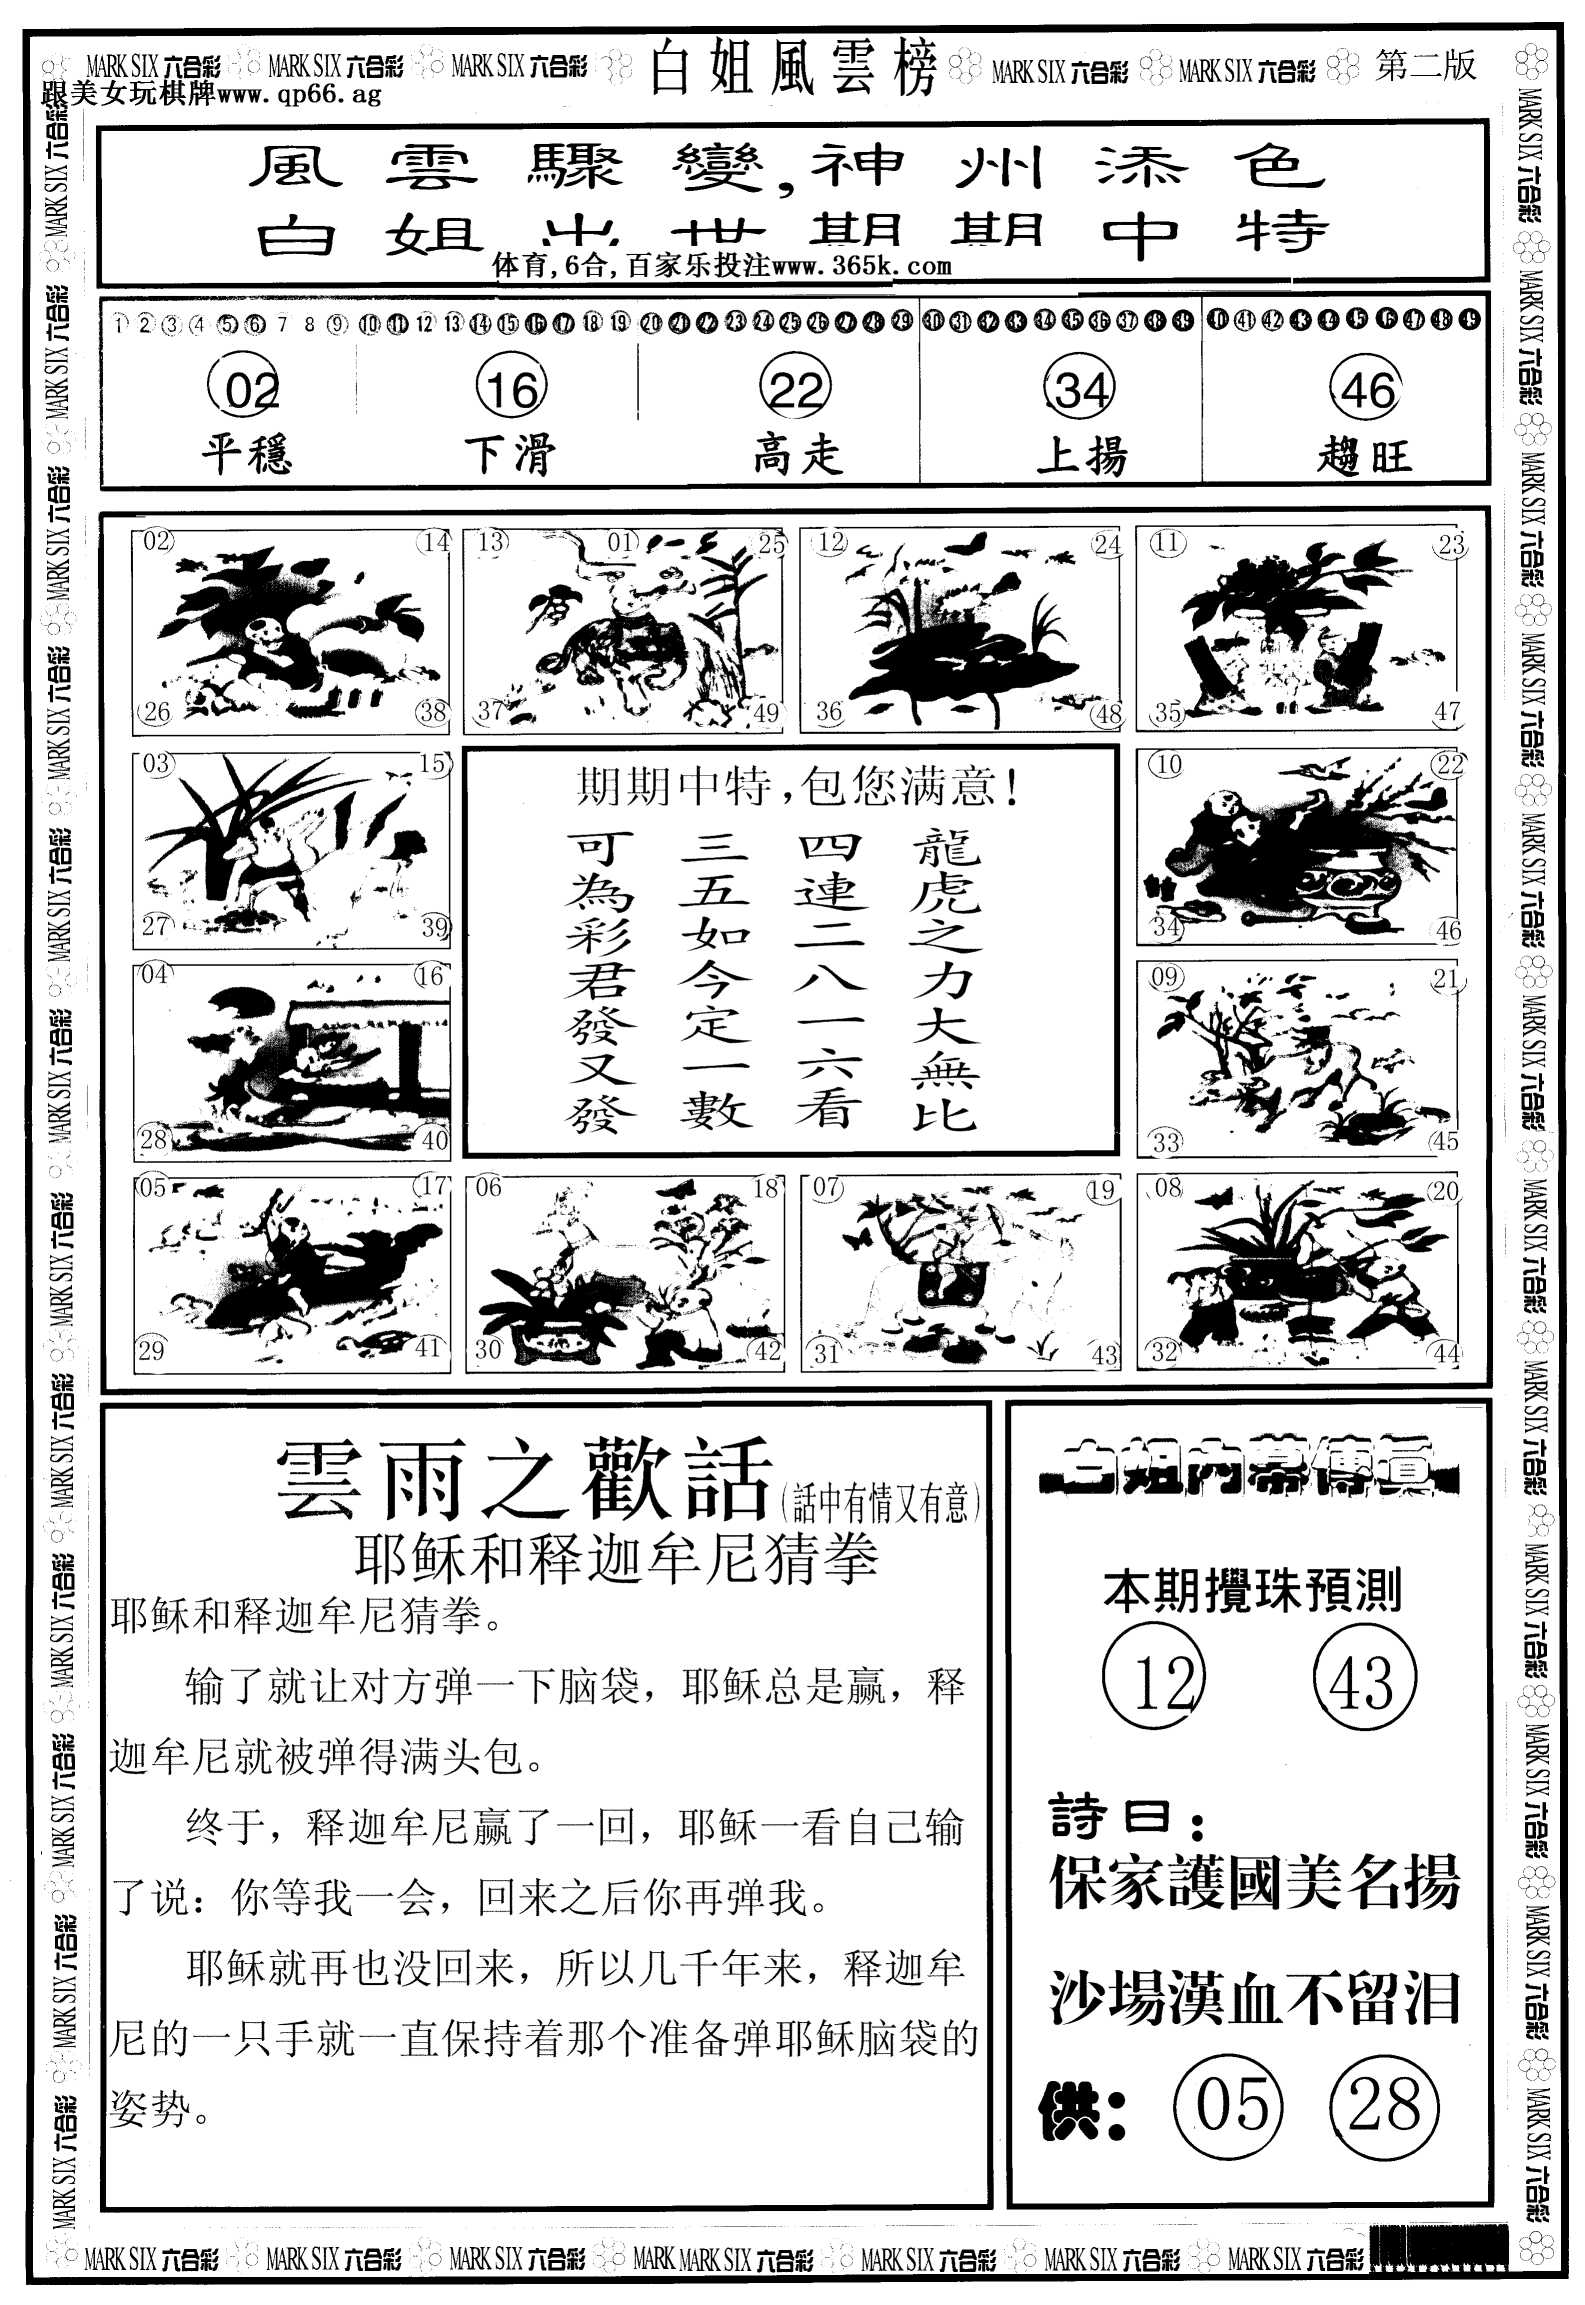 MARK SIX 六合彩 MARK SIX 六合彩 MARK SIX 六合彩 白姐風雲榜 MARK SIX 六合彩 MARK SIX 六合彩 第二版
跟美女玩棋牌www.qp66.ag
風雲驟變,神州添色
白姐出世期期中特
体育,6合,百家乐投注www.365k.com
1 2 3 4 5 6 7 8 9 10 11 12 13 14 15 16 17 18 19 20 21 22 23 24 25 26 27 28 29 30 31 32 33 34 35 36 37 38 39 40 41 42 43 44 45 46 47 48 49
02 16 22 34 46
平穩 下滑 高走 上揚 趨旺
02 14 13 01 25 12 24 11 23
26 38 37 49 36 48 35 47
03 15 10 22
27 39 34 46
04 16 09 21
28 40 33 45
05 17 06 18 07 19 08 20
29 41 30 42 31 43 32 44
期期中特,包您满意!
龍虎之力大無比
四連二八一六看
三五如今定一數
可為彩君發又發
雲雨之歡話(話中有情又有意)
耶稣和释迦牟尼猜拳
耶稣和释迦牟尼猜拳。
输了就让对方弹一下脑袋，耶稣总是赢，释
迦牟尼就被弹得满头包。
终于，释迦牟尼赢了一回，耶稣一看自己输
了说：你等我一会，回来之后你再弹我。
耶稣就再也没回来，所以几千年来，释迦牟
尼的一只手就一直保持着那个准备弹耶稣脑袋的
姿势。
白姐内幕傳真
本期攪珠預測
12 43
詩曰：
保家護國美名揚
沙場漢血不留泪
供：05 28
MARK SIX 六合彩 MARK SIX 六合彩 MARK SIX 六合彩 MARK MARK SIX 六合彩 MARK SIX 六合彩 MARK SIX 六合彩 MARK SIX 六合彩